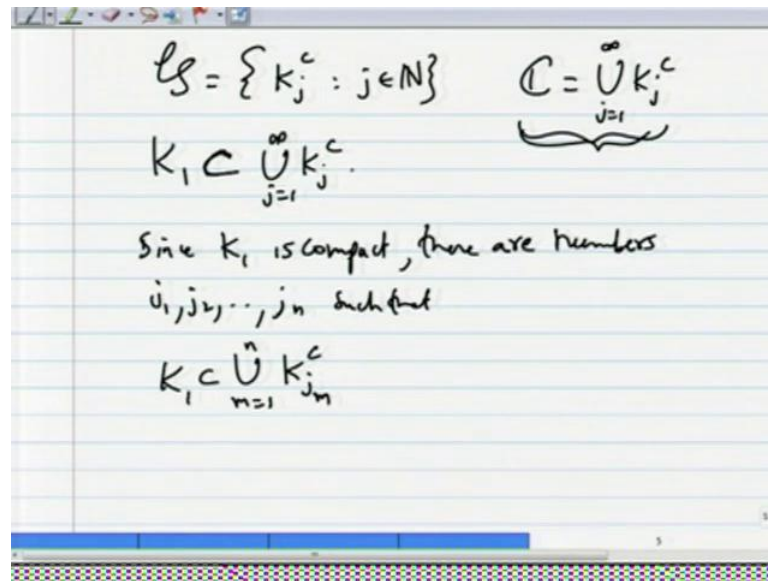 𝒢 = { K_j^c : j ∈ ℕ }   ℂ = ⋃_{j=1}^∞ K_j^c
K_1 ⊂ ⋃_{j=1}^∞ K_j^c.
Since K_1 is compact, there are numbers
j_1, j_2, .., j_n such that
K_1 ⊂ ⋃_{m=1}^n K_{j_m}^c
5